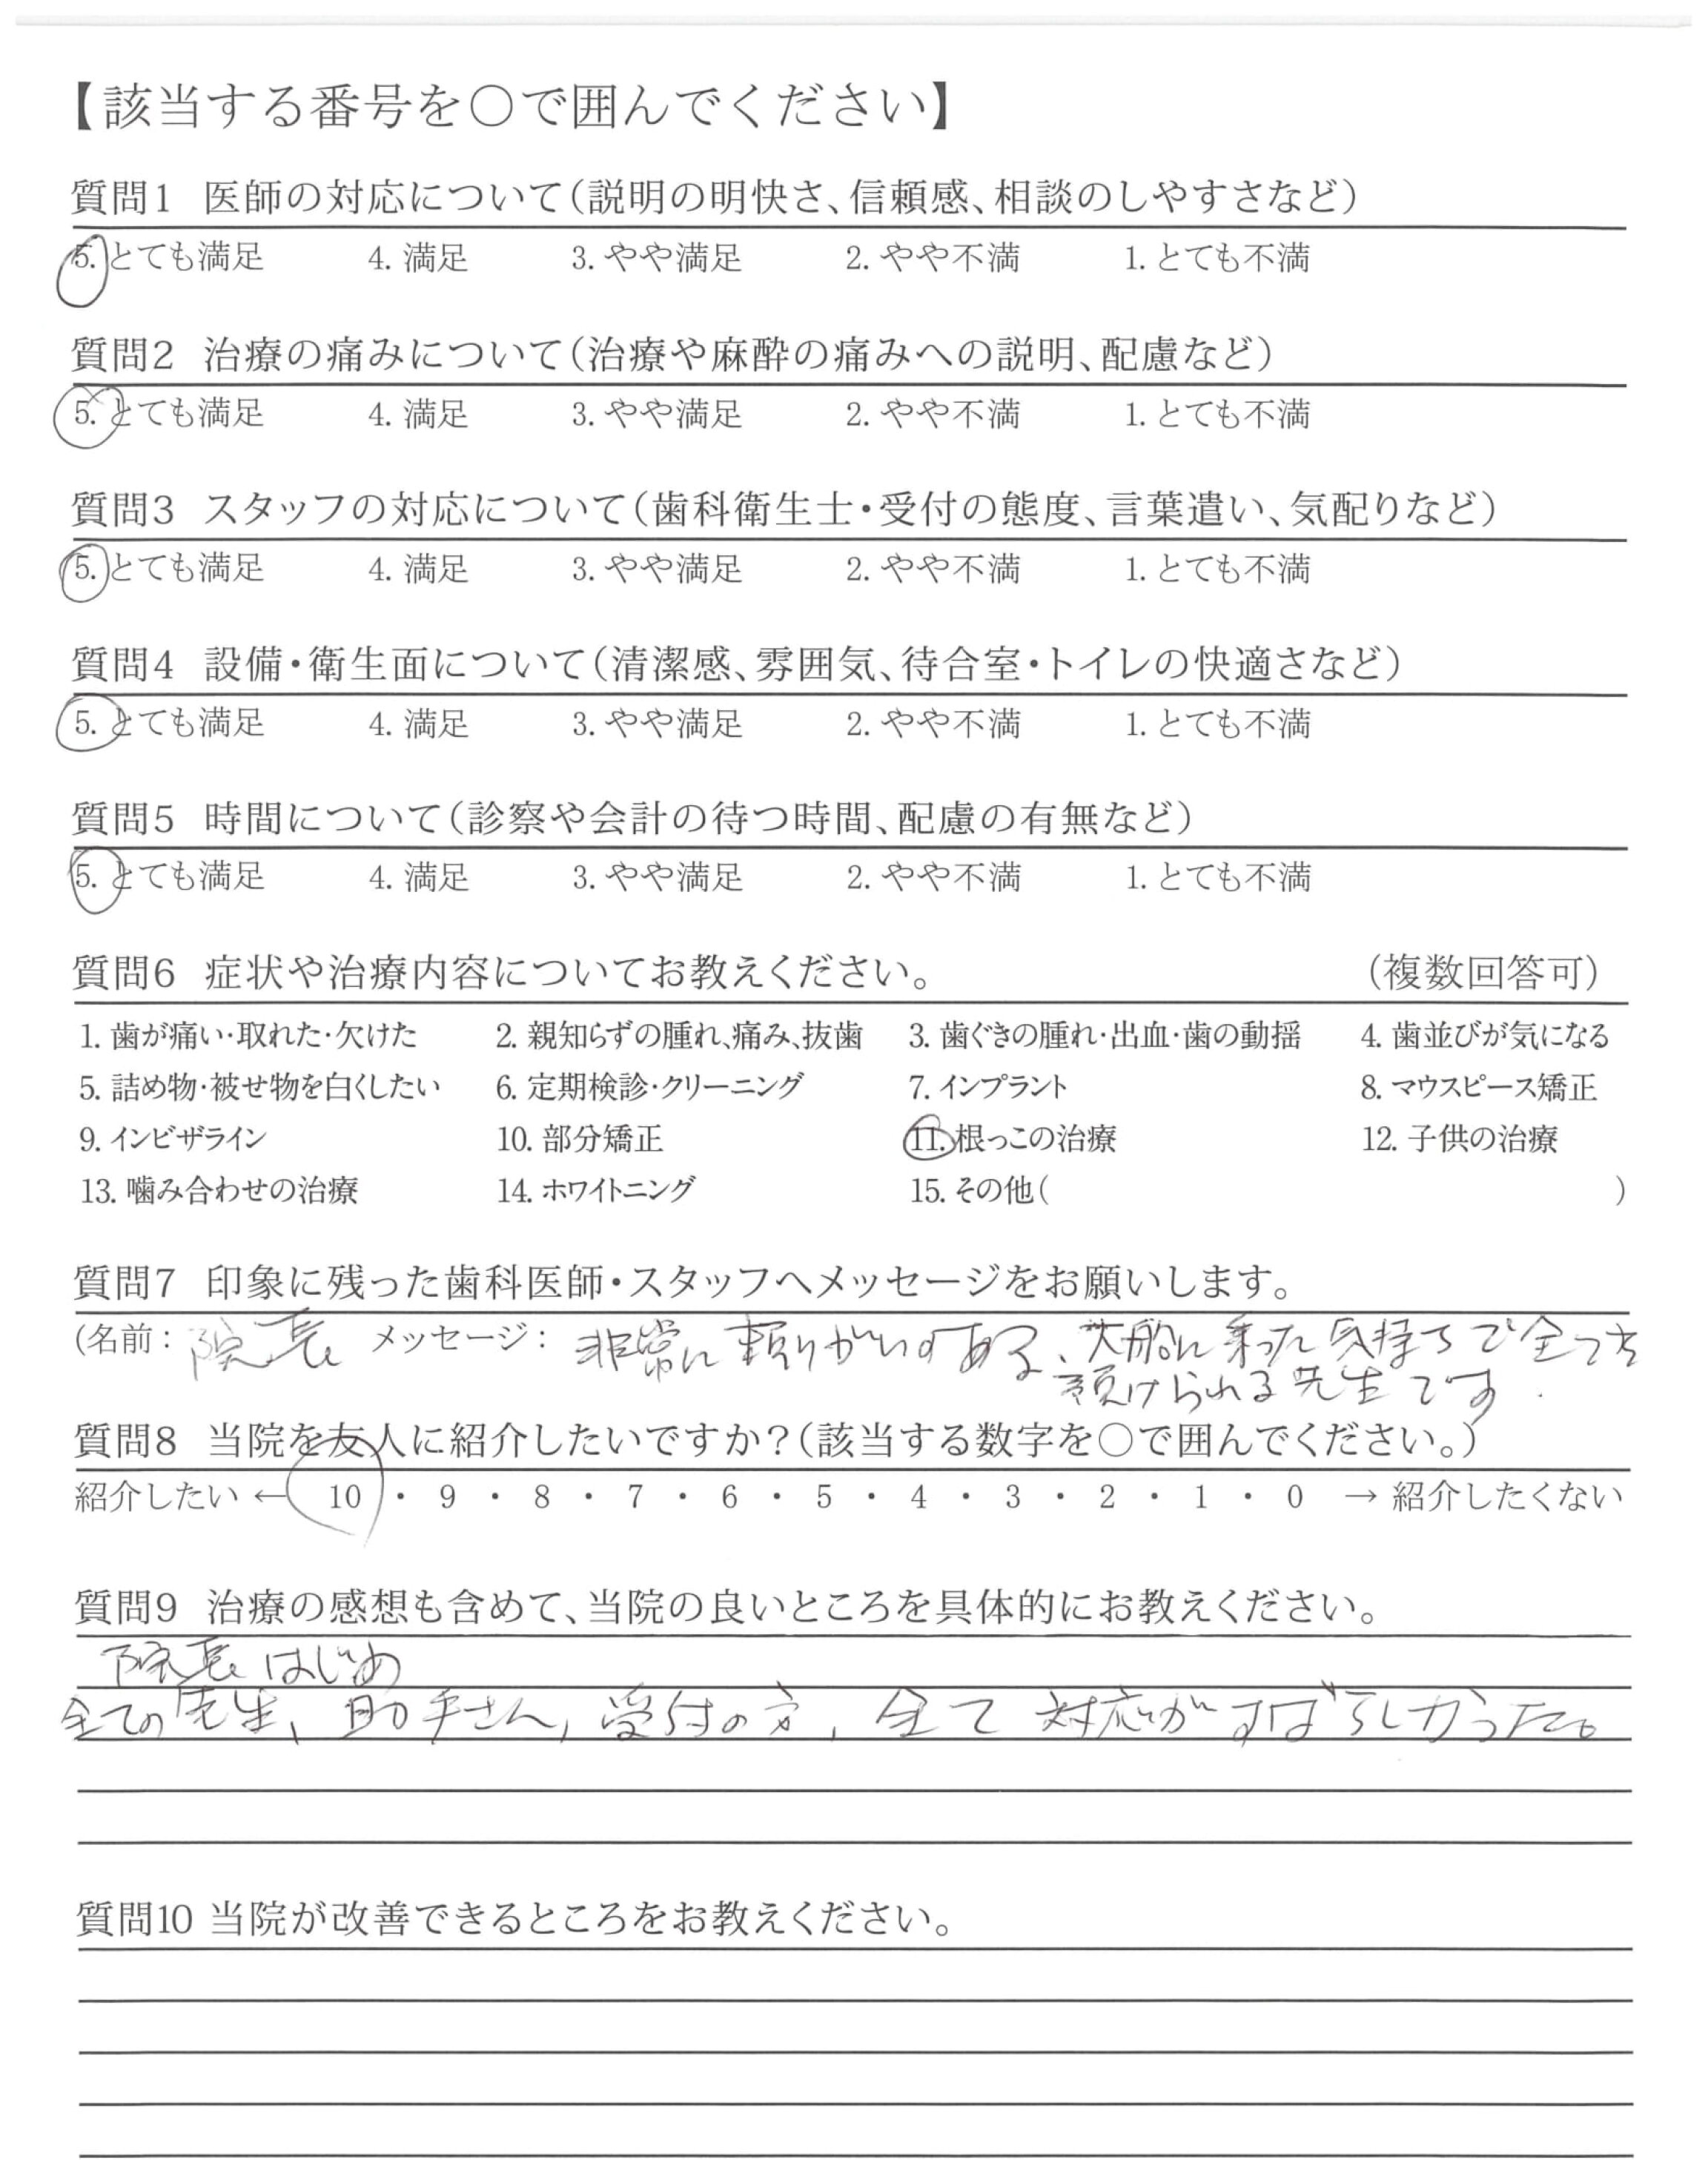 【該当する番号を○で囲んでください】
質問1 医師の対応について（説明の明快さ、信頼感、相談のしやすさなど）
5. とても満足 4. 満足 3. やや満足 2. やや不満 1. とても不満
質問2 治療の痛みについて（治療や麻酔の痛みへの説明、配慮など）
5. とても満足 4. 満足 3. やや満足 2. やや不満 1. とても不満
質問3 スタッフの対応について（歯科衛生士・受付の態度、言葉遣い、気配りなど）
5. とても満足 4. 満足 3. やや満足 2. やや不満 1. とても不満
質問4 設備・衛生面について（清潔感、雰囲気、待合室・トイレの快適さなど）
5. とても満足 4. 満足 3. やや満足 2. やや不満 1. とても不満
質問5 時間について（診察や会計の待つ時間、配慮の有無など）
5. とても満足 4. 満足 3. やや満足 2. やや不満 1. とても不満
質問6 症状や治療内容についてお教えください。 （複数回答可）
1. 歯が痛い・取れた・欠けた 2. 親知らずの腫れ、痛み、抜歯 3. 歯ぐきの腫れ・出血・歯の動揺 4. 歯並びが気になる
5. 詰め物・被せ物を白くしたい 6. 定期検診・クリーニング 7. インプラント 8. マウスピース矯正
9. インビザライン 10. 部分矯正 11. 根っこの治療 12. 子供の治療
13. 噛み合わせの治療 14. ホワイトニング 15. その他（ ）
質問7 印象に残った歯科医師・スタッフへメッセージをお願いします。
（名前：院長 メッセージ：非常に頼りがいのある、大船に乗った気持ちで全てを
預けられる先生です.
質問8 当院を友人に紹介したいですか？（該当する数字を○で囲んでください。）
紹介したい ← 10 ・ 9 ・ 8 ・ 7 ・ 6 ・ 5 ・ 4 ・ 3 ・ 2 ・ 1 ・ 0 → 紹介したくない
質問9 治療の感想も含めて、当院の良いところを具体的にお教えください。
院長はじめ
全ての先生、助手さん、受付の方、全て対応がすばらしかった。
質問10 当院が改善できるところをお教えください。